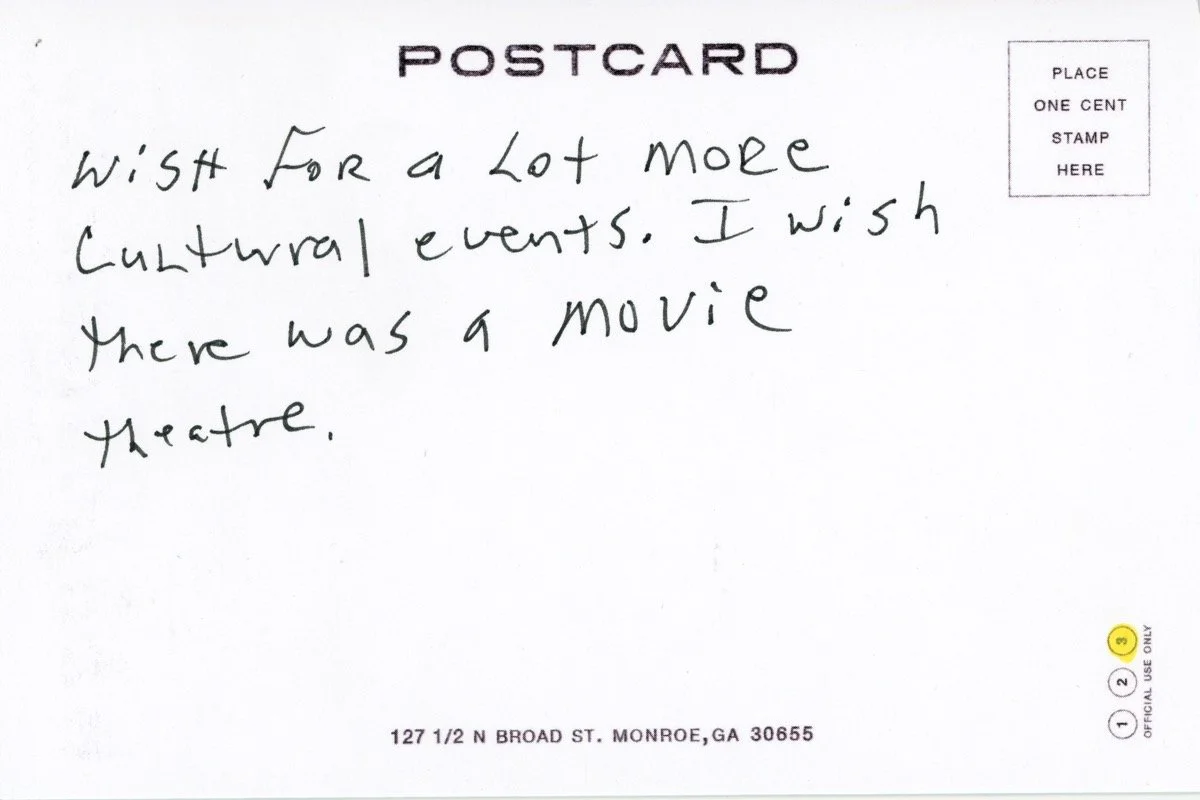 POSTCARD
PLACE
ONE CENT
STAMP
HERE
WISH FOR a Lot MORe
Cultural events. I wish
there was a movie
theatre.
1 2 3
OFFICIAL USE ONLY
127 1/2 N BROAD ST. MONROE,GA 30655